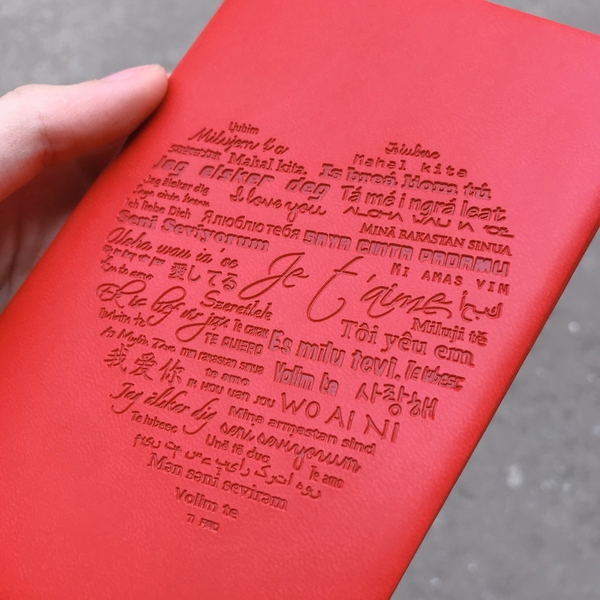 Ljubim
Milujem ťa
Te iubesc
Mahal kita
Mahal kita
Is breá liom tú
Jeg elsker deg
Tá mé i ngrá leat
I love you
Jeg elsker dig
ALOHA WAU IA OE
Ich liebe Dich
Я люблю тебя
SAYA CINTA PADAMU
MINÄ RAKASTAN SINUA
Seni Seviyorum
MI AMAS VIN
Aloha wau ia 'oe
Je t'aime
愛してる
Szeretlek
Miluji tě
Tôi yêu em
TE QUIERO
Es mīlu tevi.
Te iubesc
我爱你
te amo
Volim te
사랑해
IK HOU VAN JOU
WO AI NI
Jeg elsker dig
Mina armastan sind
Te iubesc
seni seviyorum
Unë të dua
Te amo
Mən səni sevirəm
Volim te